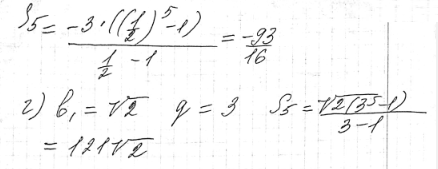 S₅ = -3·((1/2)⁵-1) / (1/2 - 1) = -93/16
г) b₁ = √2 q = 3 S₅ = √2(3⁵-1) / (3-1)
= 121√2